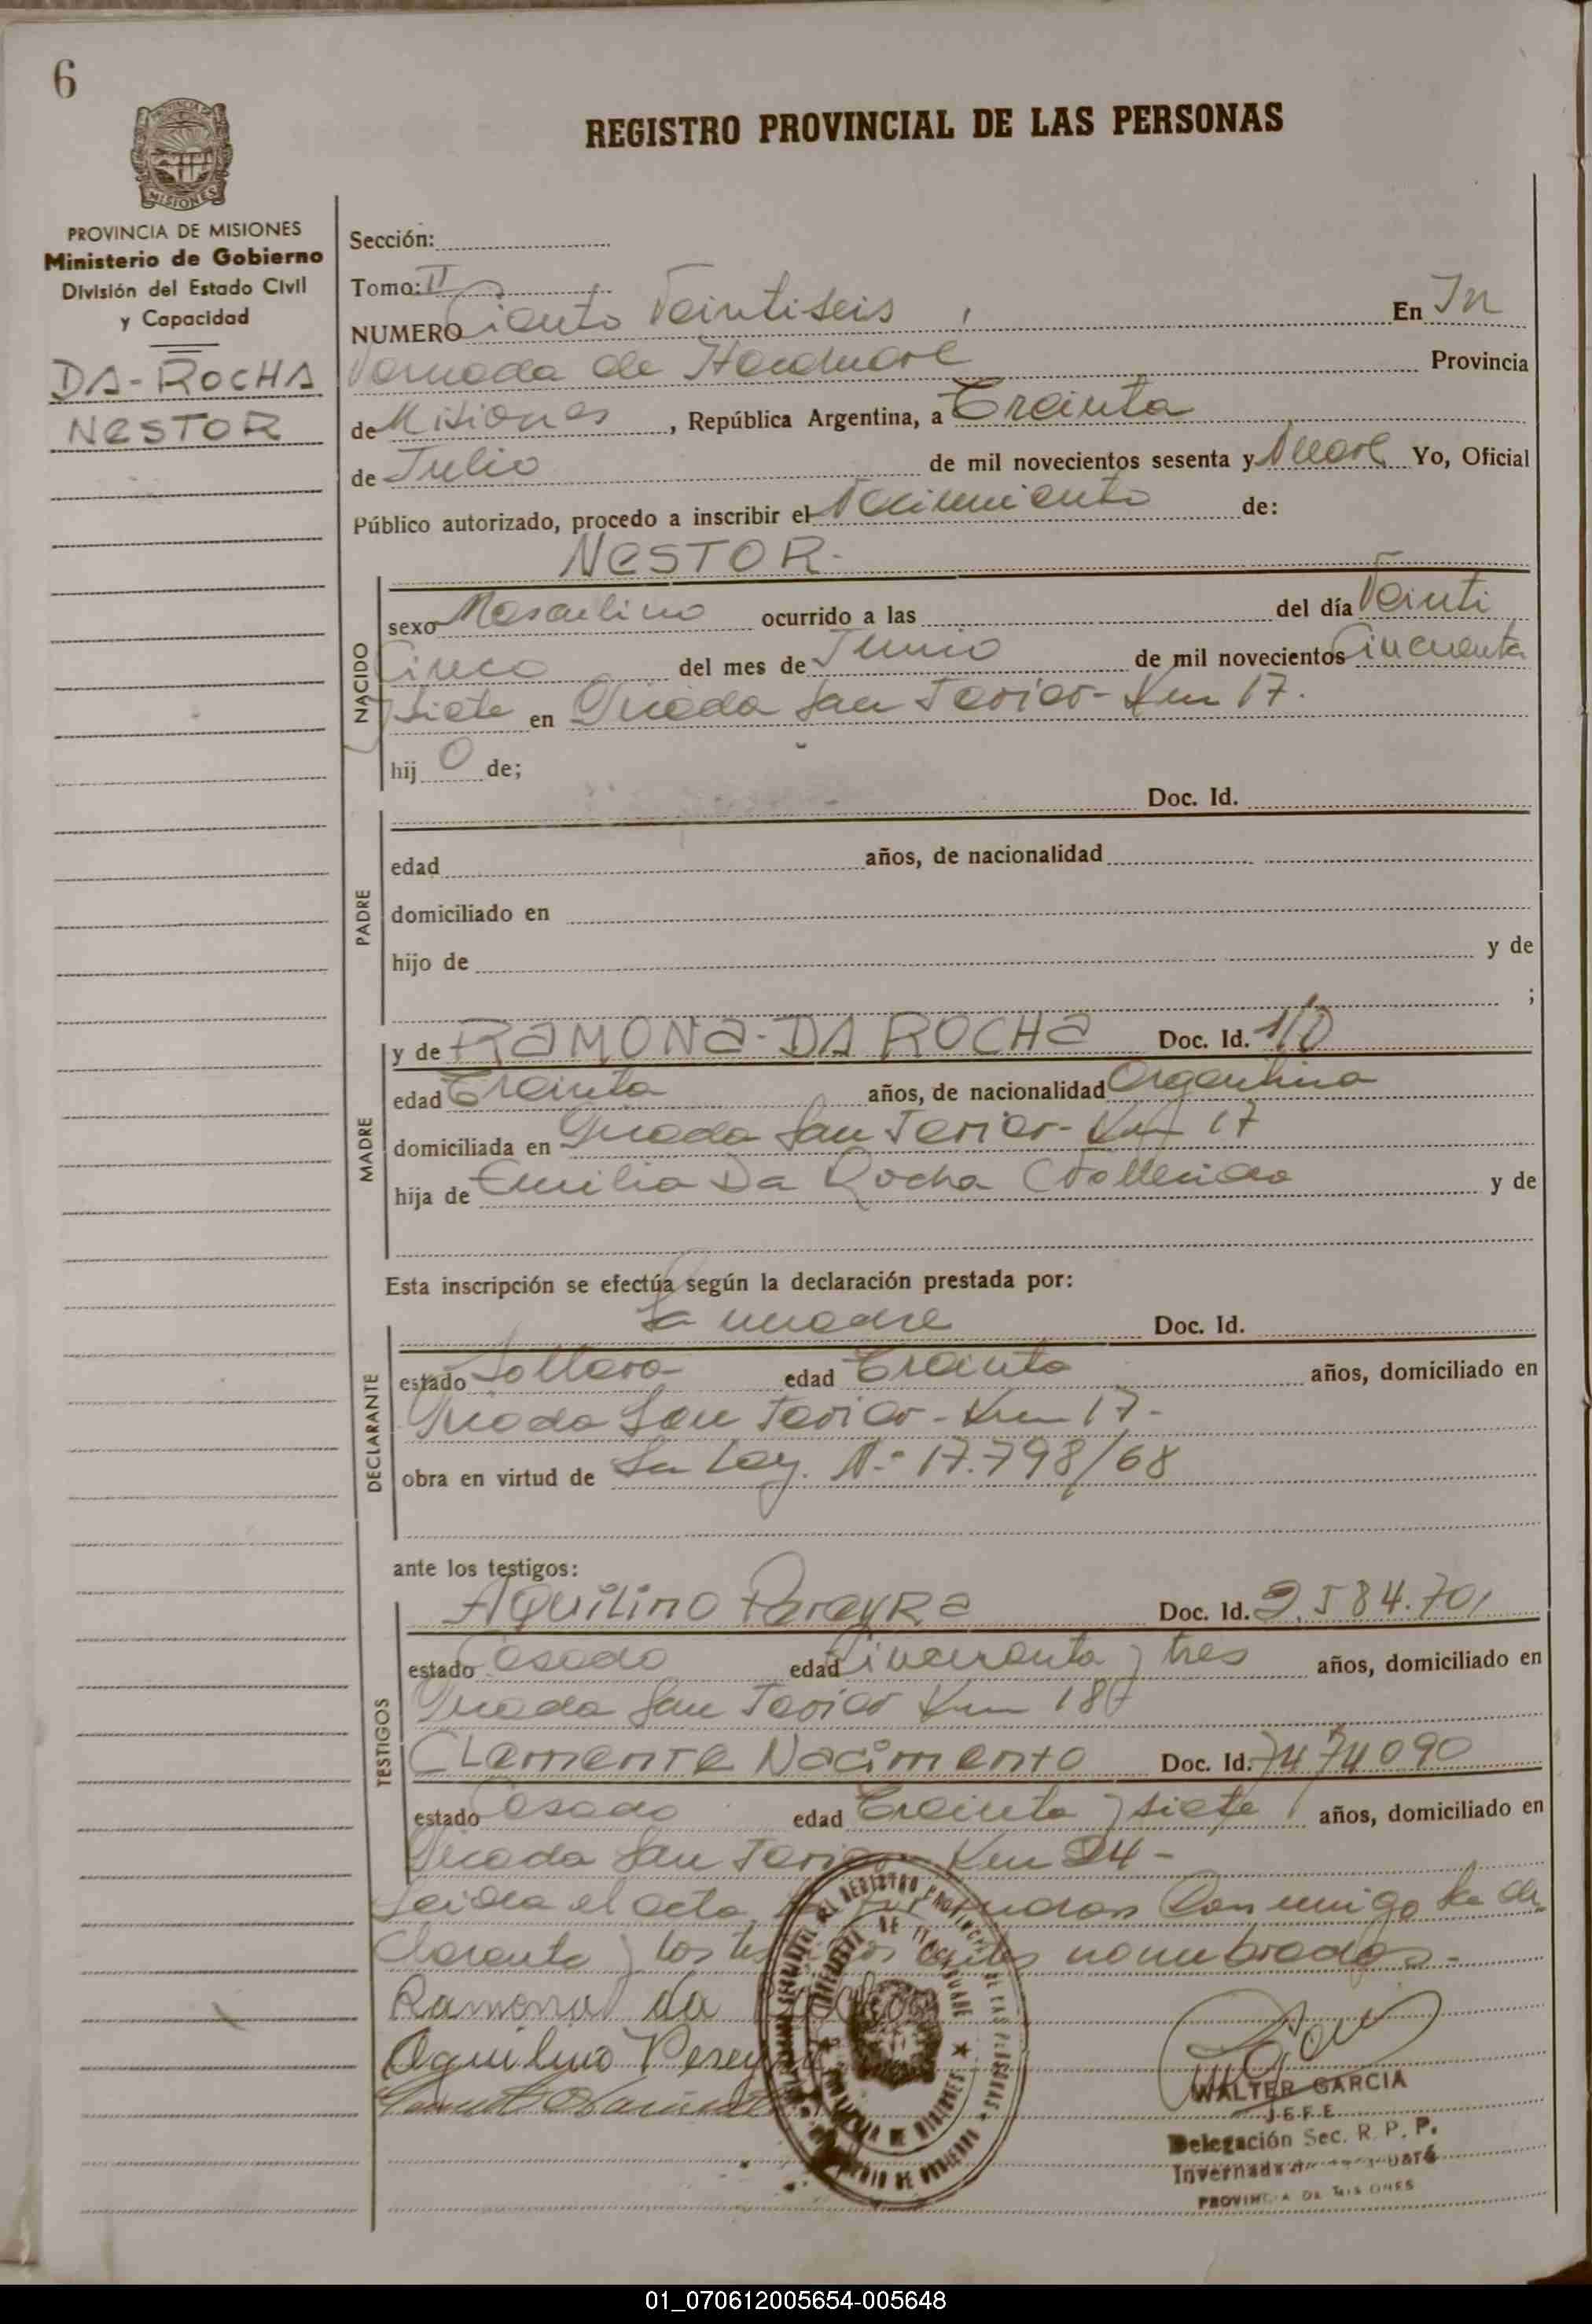 6
REGISTRO PROVINCIAL DE LAS PERSONAS
PROVINCIA DE MISIONES
Ministerio de Gobierno
División del Estado Civil
y Capacidad
DA-ROCHA
NESTOR
Sección:
Tomo: II
NUMERO Ciento Veintiseis, En In
vernada de Itacuaré Provincia
de Misiones, República Argentina, a Treinta
de Julio de mil novecientos sesenta y Nueve Yo, Oficial
Público autorizado, procedo a inscribir el Nacimiento de:
NESTOR.
NACIDO
sexo Masculino ocurrido a las del día Veinti
Cinco del mes de Junio de mil novecientos Cincuenta
y siete en Picada San Javier - Km 17.
hij o de;
Doc. Id.
PADRE
edad años, de nacionalidad
domiciliado en
hijo de y de
;
MADRE
y de RAMONA-DA ROCHA Doc. Id. 1/D
edad Treinta años, de nacionalidad Argentina
domiciliada en Picada San Javier - Km 17
hija de Emilia Da Rocha (Fallecida y de
Esta inscripción se efectúa según la declaración prestada por:
La madre Doc. Id.
DECLARANTE
estado Soltera edad Treinta años, domiciliado en
Picada San Javier - Km 17-
obra en virtud de La Ley. N.° 17.798/68
ante los testigos:
TESTIGOS
AQUILINO PereyRa Doc. Id. 2.584.701
estado Casado edad Cincuenta y tres años, domiciliado en
Picada San Javier Km 18
CLEMENTE Nacimento Doc. Id. 7474090
estado Casado edad Treinta y siete años, domiciliado en
Picada San Javier Km 24-
Leida el acta, la firman Conmigo la de
clarante y los testigos antes nombrados.-
Ramona da Rocha
Aquilino Pereyra
WALTER GARCIA
J-E-F-E
Delegación Sec. R. P. P.
Invernada
PROVINCIA DE MISIONES
01_070612005654-005648